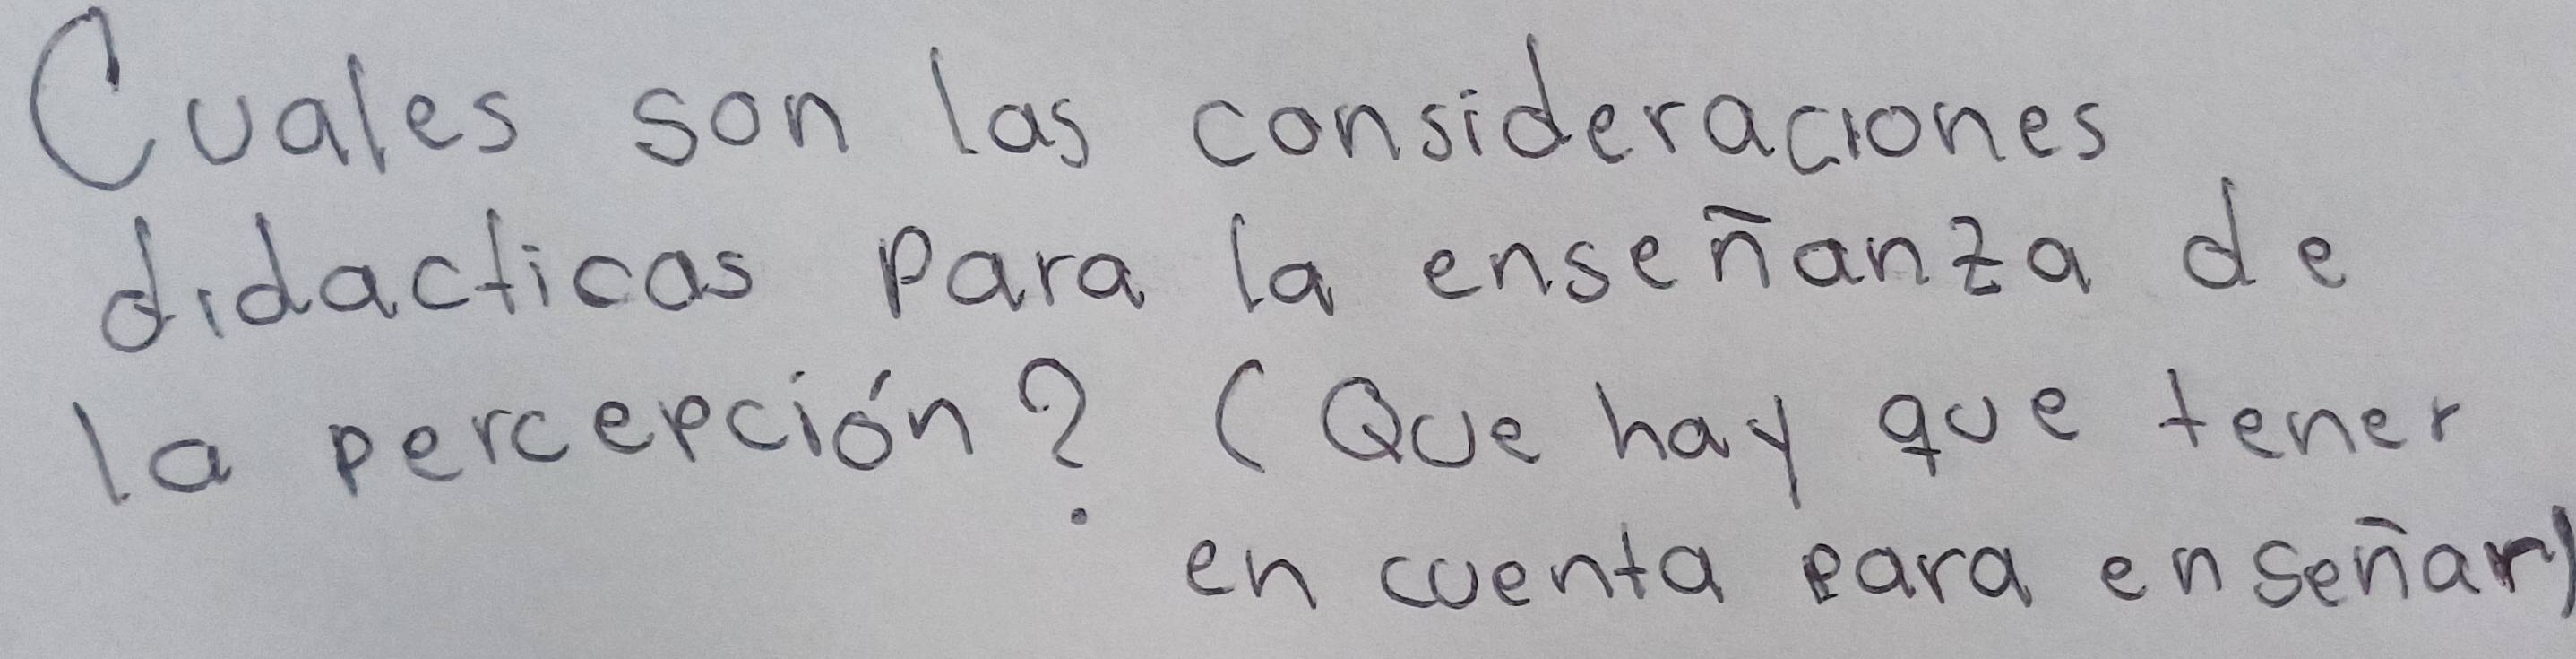 Cuales son las consideraciones
didacticas para la enseñanza de
la percepción? (Que hay que tener
en cuenta para enseñar)